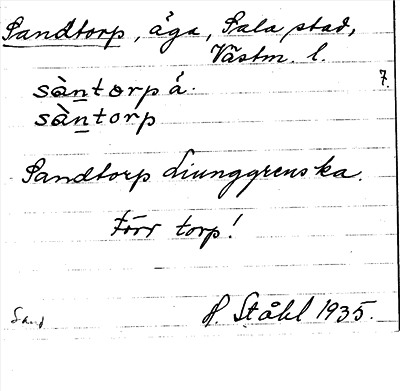 Sandtorp, äga, Sala stad,
Västm. l.
7.
sàntorp å.
sàntorp
Sandtorp Liunggrenska.
Förr torp!
Sand H. Ståhl 1935.